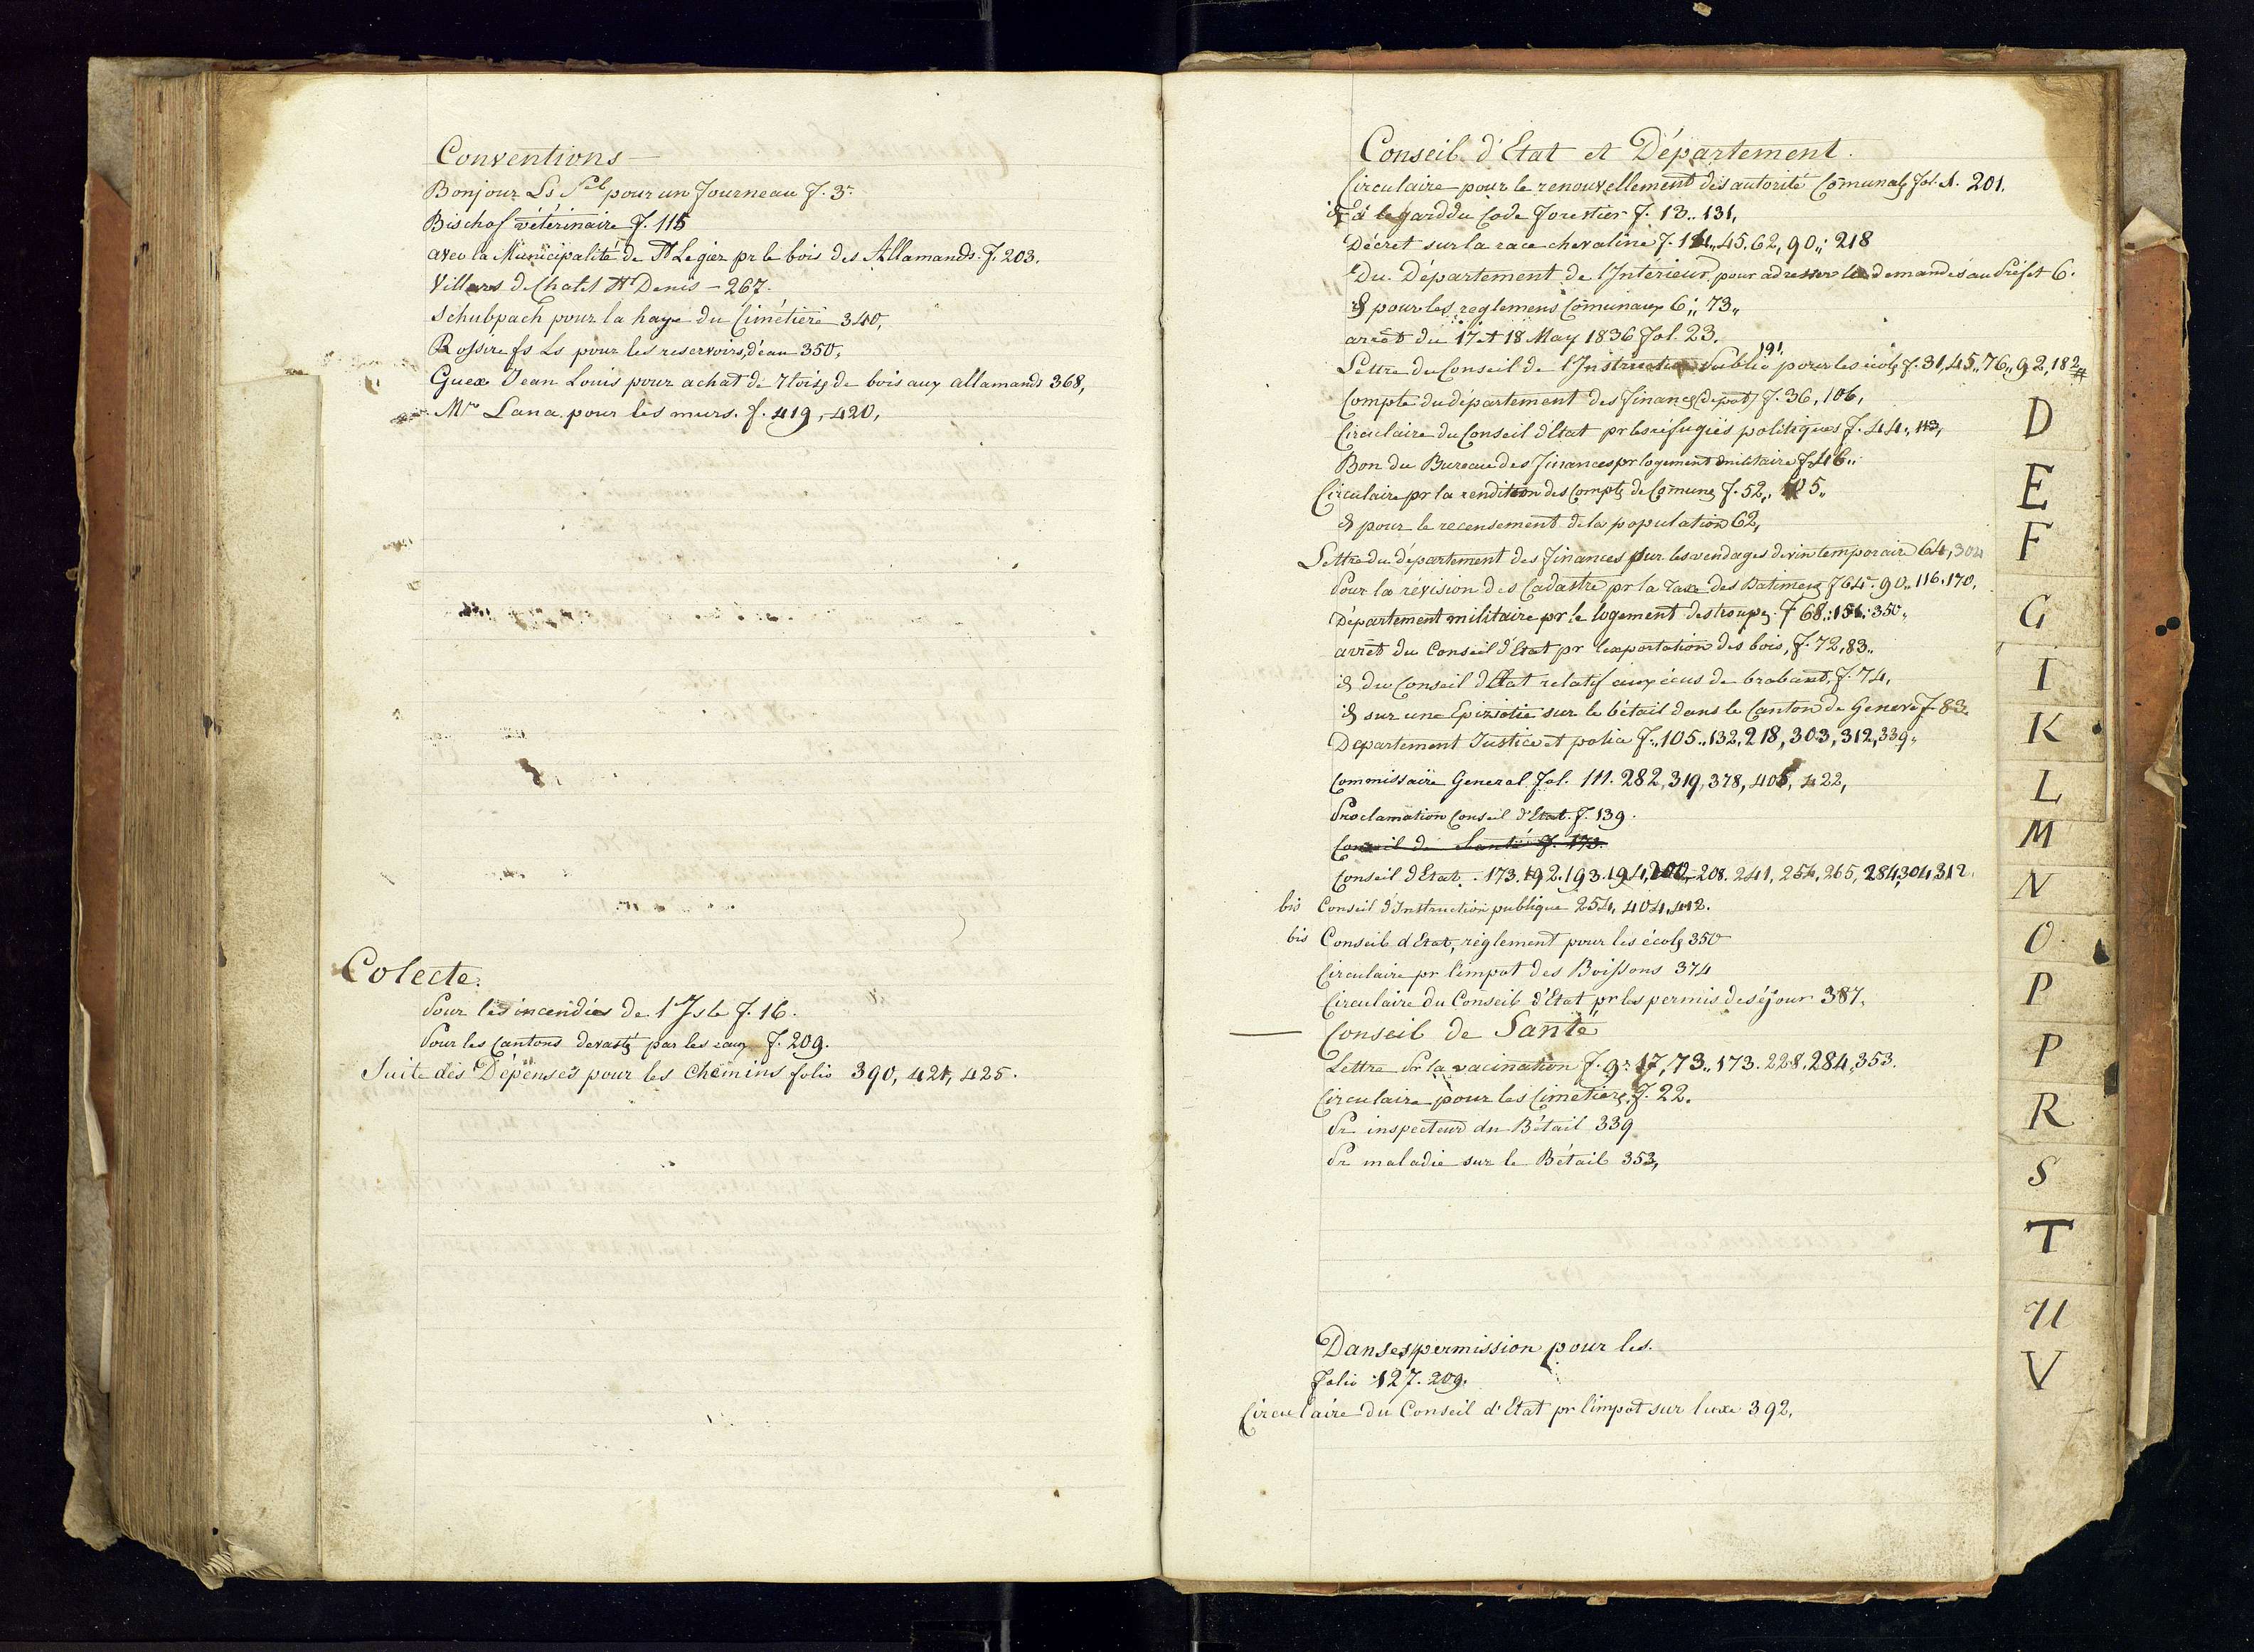 Conventions
Bonjour Ls Sel pour un Journeau f. 3.
Bischof vétérinaire f. 115
avec la Municipalité de St Legier pr le bois des Allamands. f. 203.
Villars de Chatel St Denis - 267.
Schubpach pour la haye du Cimétière 340,
Rossire fs Ls pour les reservoirs d'eau 350,
Guex Jean Louis pour achat de 7 toises de bois aux allamands 368,
Mr Lana pour les murs. f. 419, 420,
Colecte.
Pour les incendiés de l'Isle f. 16.
Pour les Cantons devastés par les eaux f. 209.
Suite des Dépenses pour les Chemins folio 390, 421, 425.
Conseil d'Etat et Département.
Circulaire pour le renouvellement des autorité Comunales fol. 1. 201.
id à legard du Code forestier f. 13.. 131,
Décret sur la race chevaline f. 45. 62, 90.. 218
Du Département de l'Interieur pour adresser les demandes au Préfet 6.
id pour les reglemens Comunaux 6.. 73..
arrêt du 17 et 18 May 1836 fol. 23.
191
Lettre du Conseil de l'Instruction Public pour les écoles f. 31, 45.. 76.. 92, 182
Compte du département des finances (depot) f. 36, 106,
Circulaire du Conseil d'Etat pr les réfugiés politiques f. 44., 113,
Bon du Bureau des finances pr logement militaire f. 46..
Circulaire pr la rendition des Comptes de Comunes f. 52..
id pour le recensement de la population 62,
Lettre du département des finances sur les vendages de vin temporaire 64, 304
Pour la révision des Cadastre pr la Taxe des Batimens f 64. 90.. 116. 170.
Département militaire pr le logement des troupes. f 68.. 151. 350..
arrêt du Conseil d'Etat pr l'exportation des bois, f. 72, 83..
id du Conseil d'Etat relatif aux écus de brabant, f. 74,
id sur une Epizotie sur le bétail dans le Canton de Geneve f. 83.
Departement Justice et police f.. 105.. 132, 218, 303, 312, 339..
Commissaire General fol. 111. 282, 319, 378, 406, 422,
Proclamation Conseil d'Etat. f. 139.
Conseil de Santé f. 173.
Conseil d'Etat. 173. 192. 193. 194, 200, 208. 241, 254, 265, 284, 304, 312.
bis Conseil d'Instruction publique 254, 404, 412.
bis Conseil d'Etat, règlement pour les écoles 350
Circulaire pr l'impot des Boissons 374
Circulaire du Conseil d'Etat pr les permis de séjour 387.
Conseil de Santé
Lettre Pr la vacination f. 9. 17, 73.. 173. 228. 284, 353.
Circulaire pour les Cimetieres. f. 22.
Pr inspecteur du Bétail 339
Pr maladie sur le Bétail 353,
Danses, permission pour les.
folio 127. 209.
Circulaire du Conseil d'Etat pr l'impot sur luxe 392.
D
E
F
G
I
K
L
M
N
O
P
P
R
S
T
U
V